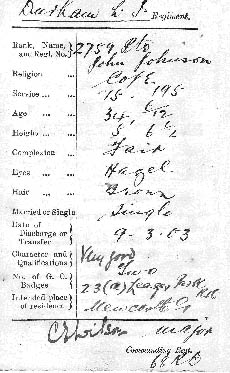 Durham L. I. Regiment.
Rank, Name, and Regtl. No. } 2759 Pte
John Johnson
Religion ... C of E
Service ... 15 - 195
Age ... 34
Height ... 5 6½
Complexion ... Fair
Eyes ... Hazel
Hair ... Brown
Married or Single Single
Date of Discharge or Transfer } 9.3.03
Character and Qualifications } Very good
No. of G. C. Badges } Two
Intended place of residence } 23 (a)
Newcastle
Major
Commanding